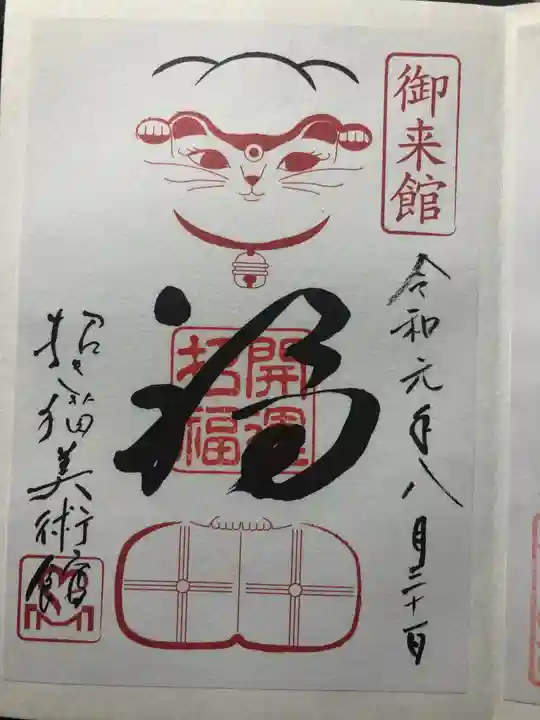 御来館
令和元年八月三十一日
福
開運
招福
招き猫美術館